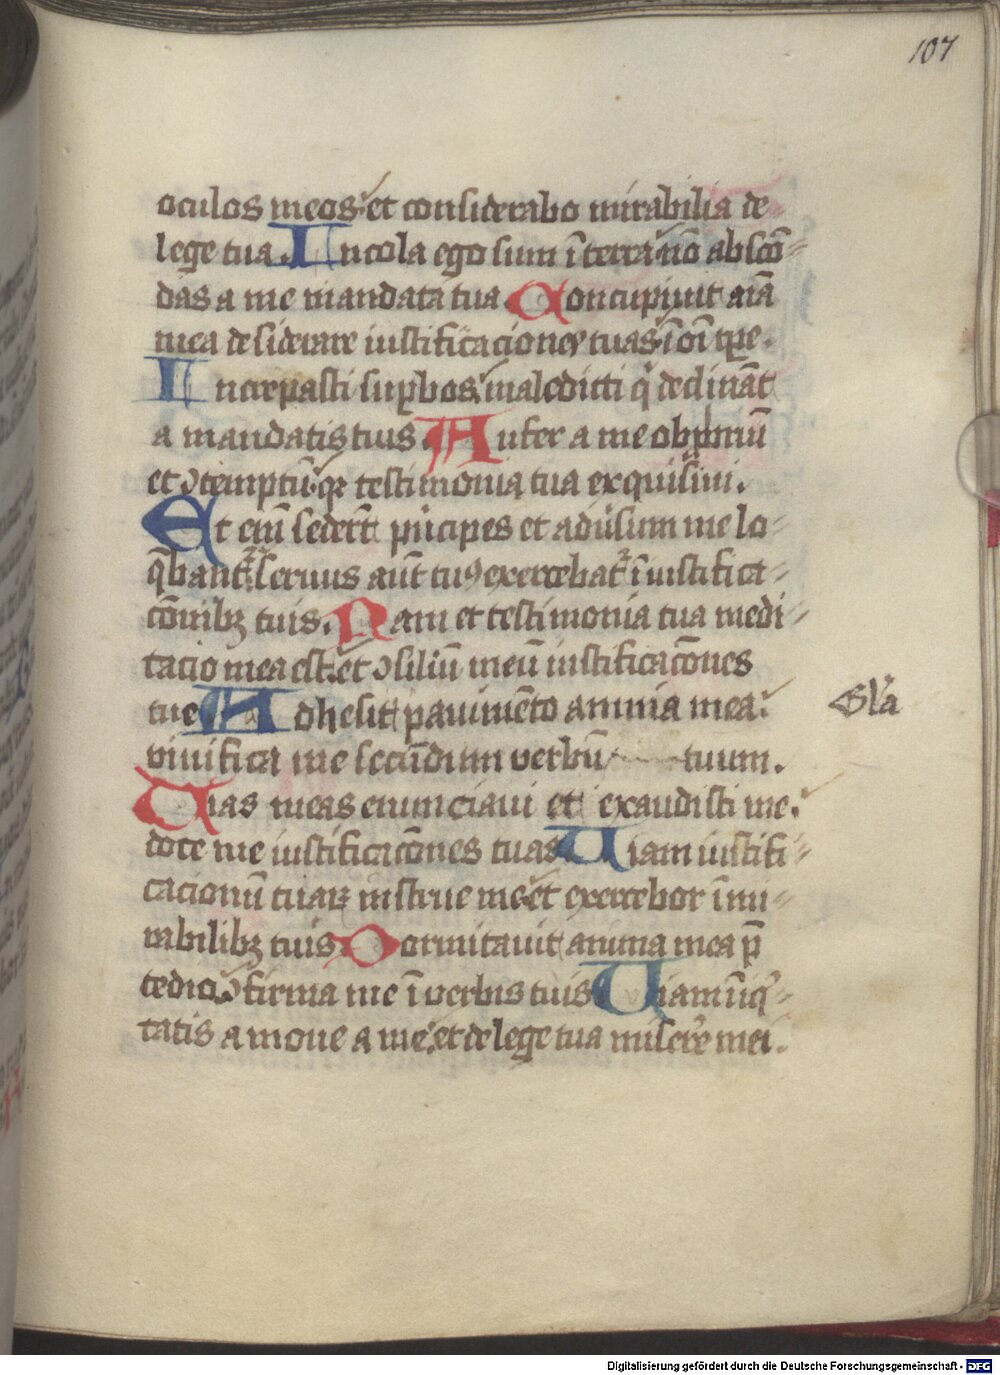 107
oculos meos· et considerabo mirabilia de-
lege tua. Incola ego sum ī terra· nō abscō-
das a me mandata tua. Concupiuit aīa
mea desiderare iustificaciones tuas· ī oī tꝑe.
Increpasti suꝑbos· maledicti q̇ declināt
a mandatis tuis. Aufer a me obprōiū
et ↄtemptū· qꝛ testimonia tua exquisiui.
Et em̄ sederūt prīcipes et aduˀsum me lo-
q̄bantˀ· Seruus aūt tuꝰ exercebatˀ ī iustifica-
cōnibꝫ tuis. Nam et testimonia tua medi-
tacio mea est· et ↄsiliū meū iustificacōnes
tue Adhesit pauimēto anima mea·
viuifica me secūdum verbū tuum.
Uias meas enunciaui et exaudisti me·
doce me iustificacōnes tuas Uiam iustifi-
cacionū tuaꝝ instrue me· et exercebor ī mi-
rabilibꝫ tuis. Dormitauit anima mea p̄
tedio· ↄfirma me ī verbis tuis Uiam īiq̇-
tatis amoue a me· et de lege tua miserˀe mei.
Gl̄a
Digitalisierung gefördert durch die Deutsche Forschungsgemeinschaft - DFG